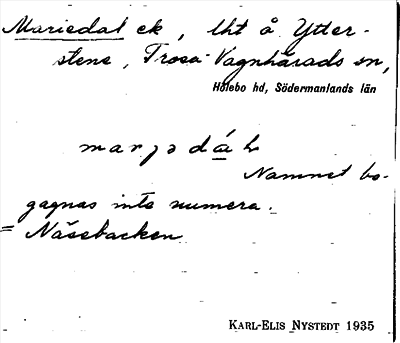 Mariedal ek, lht å Ytter-
stene, Trosa-Vagnhärads sn,
Hölebo hd, Södermanlands län
Namnet be-
gagnas inte numera.
= Näsebacken
KARL-ELIS NYSTEDT 1935